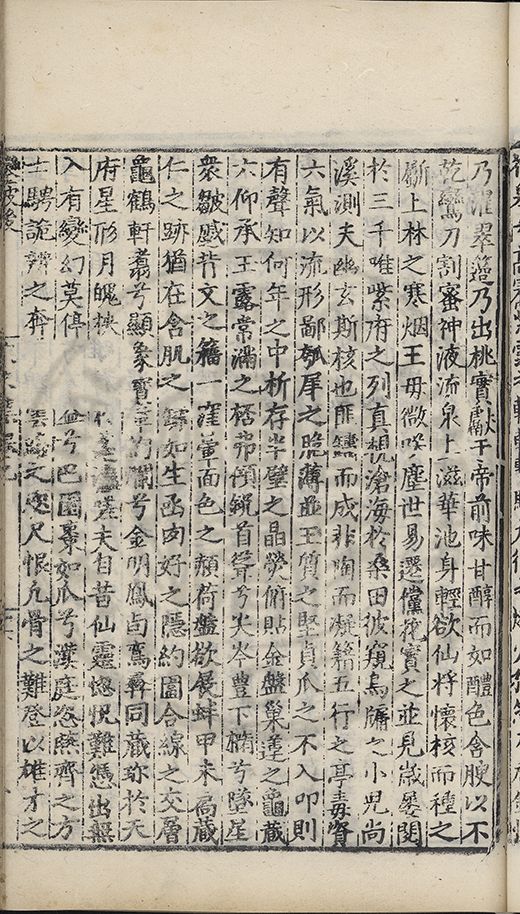 乃濯翠籩乃出桃實獻于帝前味甘醇而如醴色含腴以不
乾鸞刀割蜜神液流泉上滋華池身輕欲仙将懷核而種之
斸上林之寒烟王母微哂塵世易遷儻花實之並見歲屡閱
於三千唯紫府之列真想滄海於桑田彼窺烏牖之小児尚
溪測夫幽玄斯核也匪鑄而成非陶而凝籍五行之亭毒資
六氣以流形鄙瓠犀之脆薄並玉質之堅貞爪之不入叩則
有聲知何年之中析存半璧之晶熒俯貼金盤巢蓮之龜藏
六仰承玉露常滿之桮弗傾銳首聳兮尖岑豊下橢兮墜星
衆皺蹙背文之籀一窪革面色之頳荷盤欲展蚌甲未扃藏
仁之跡猶在含肌之 如生函肉好之隱約圍合線之交層
龜鶴軒翥兮顯象寳章灼爛兮金明鳳卣鸞彝同蔵珎於天
府星形月魄 嗟夫自昔仙靈惚怳難憑出無
入有變幻莫停 兮巴園棗如瓜兮漢庭恣陳齊之方
士騁詭辨之 咫尺恨凢骨之難登以雄才之